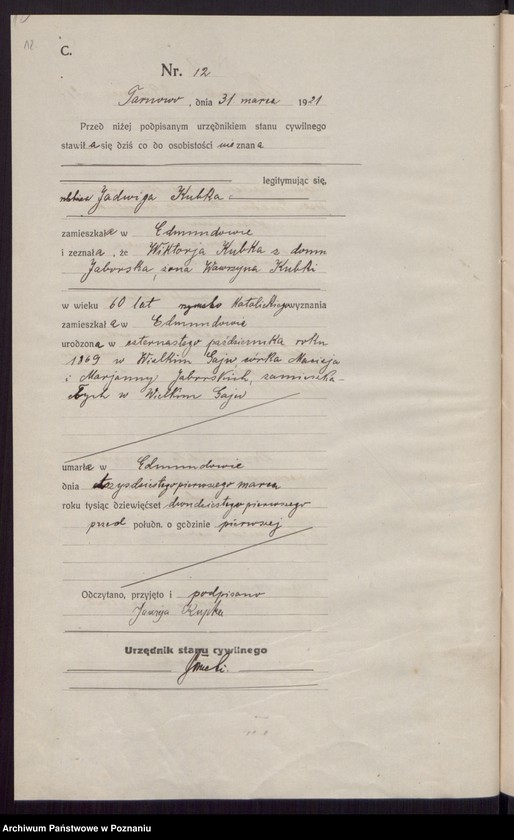 12
C.
Nr. 12
Tarnowo, dnia 31 marca 1921
Przed niżej podpisanym urzędnikiem stanu cywilnego
stawiła się dziś co do osobistości nieznana
legitymując się,
Jadwiga Kubka
zamieszkała w Edmundowie
i zeznała, że Wiktorja Kubka z domu
Jaborska, żona Wawrzyna Kubki
w wieku 60 lat rzymsko katolickiego wyznania
zamieszkała w Edmundowie
urodzona w czternastego października roku
1869 w Wielkim Gaju córka Macieja
i Marjanny Jaborskich, zamieszka-
łych w Wielkim Gaju
umarła w Edmundowie
dnia trzydziestego pierwszego marca
roku tysiąc dziewięćset dwudziestego pierwszego
przed połudn. o godzinie pierwszej
Odczytano, przyjęto i podpisano
Kupka
Urzędnik stanu cywilnego
Archiwum Państwowe w Poznaniu